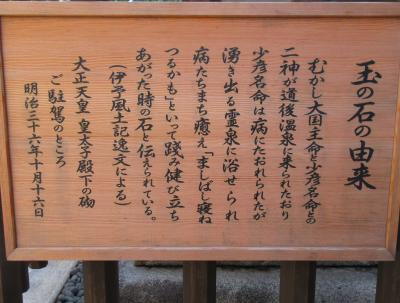 玉の石の由来
むかし大国主命と少彦名命との
二神が道後温泉に来られたおり
少彦名命は病にたおれられたが
湧き出る霊泉に浴せられ
病たちまち癒え「ましばし寝ね
つるかも」といって踐み健び立ち
あがった時の石と伝えられている。
（伊予風土記逸文による）
大正天皇皇太子殿下の砌
ご駐駕のところ
明治三十六年十月十六日